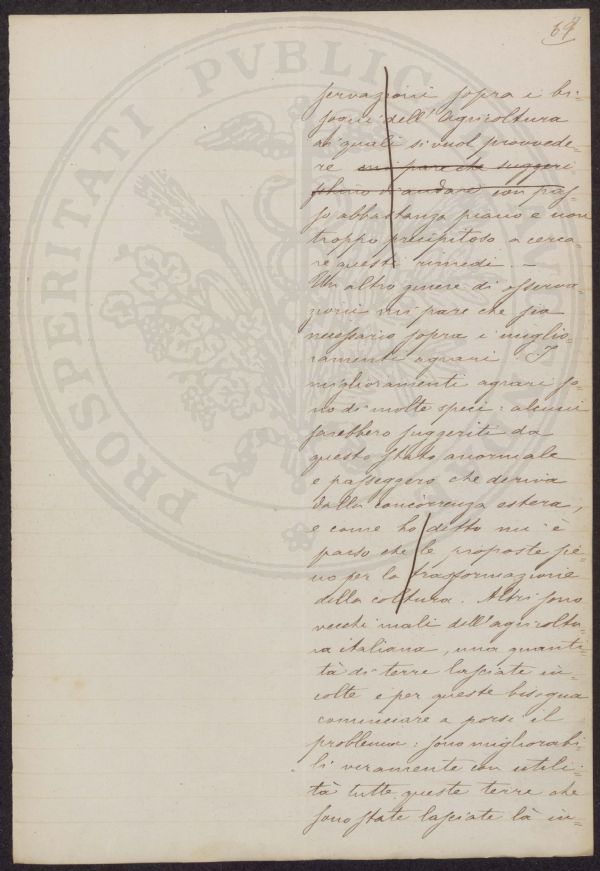 69
servazioni sopra i bi=
sogni dell'Agricoltura
ai quali si vuol provvede=
re mi pare che suggeri
schino di andare con pas=
so abbastanza piano e non
troppo precipitoso a cerca=
re questi rimedi. –
Un altro genere di osserva=
zioni mi pare che sia
necessario sopra i miglio=
ramenti agrari. I
miglioramenti agrari so=
no di molte speci: alcuni
sarebbero suggeriti da
questo stato anormale
e passeggero che deriva
dalla concorrenza estera,
e come ho detto mi è
parso che le proposte sie=
no per la trasformazione
della coltura. Altri sono
vecchi mali dell'agricoltu=
ra italiana, una quanti=
tà di terre lasciate in=
colte e per queste bisogna
cominciare a porsi il
problema: sono migliorabi=
li veramente con utili=
tà tutte queste terre che
sono state lasciate là in=
PROSPERITATI PVBLIC